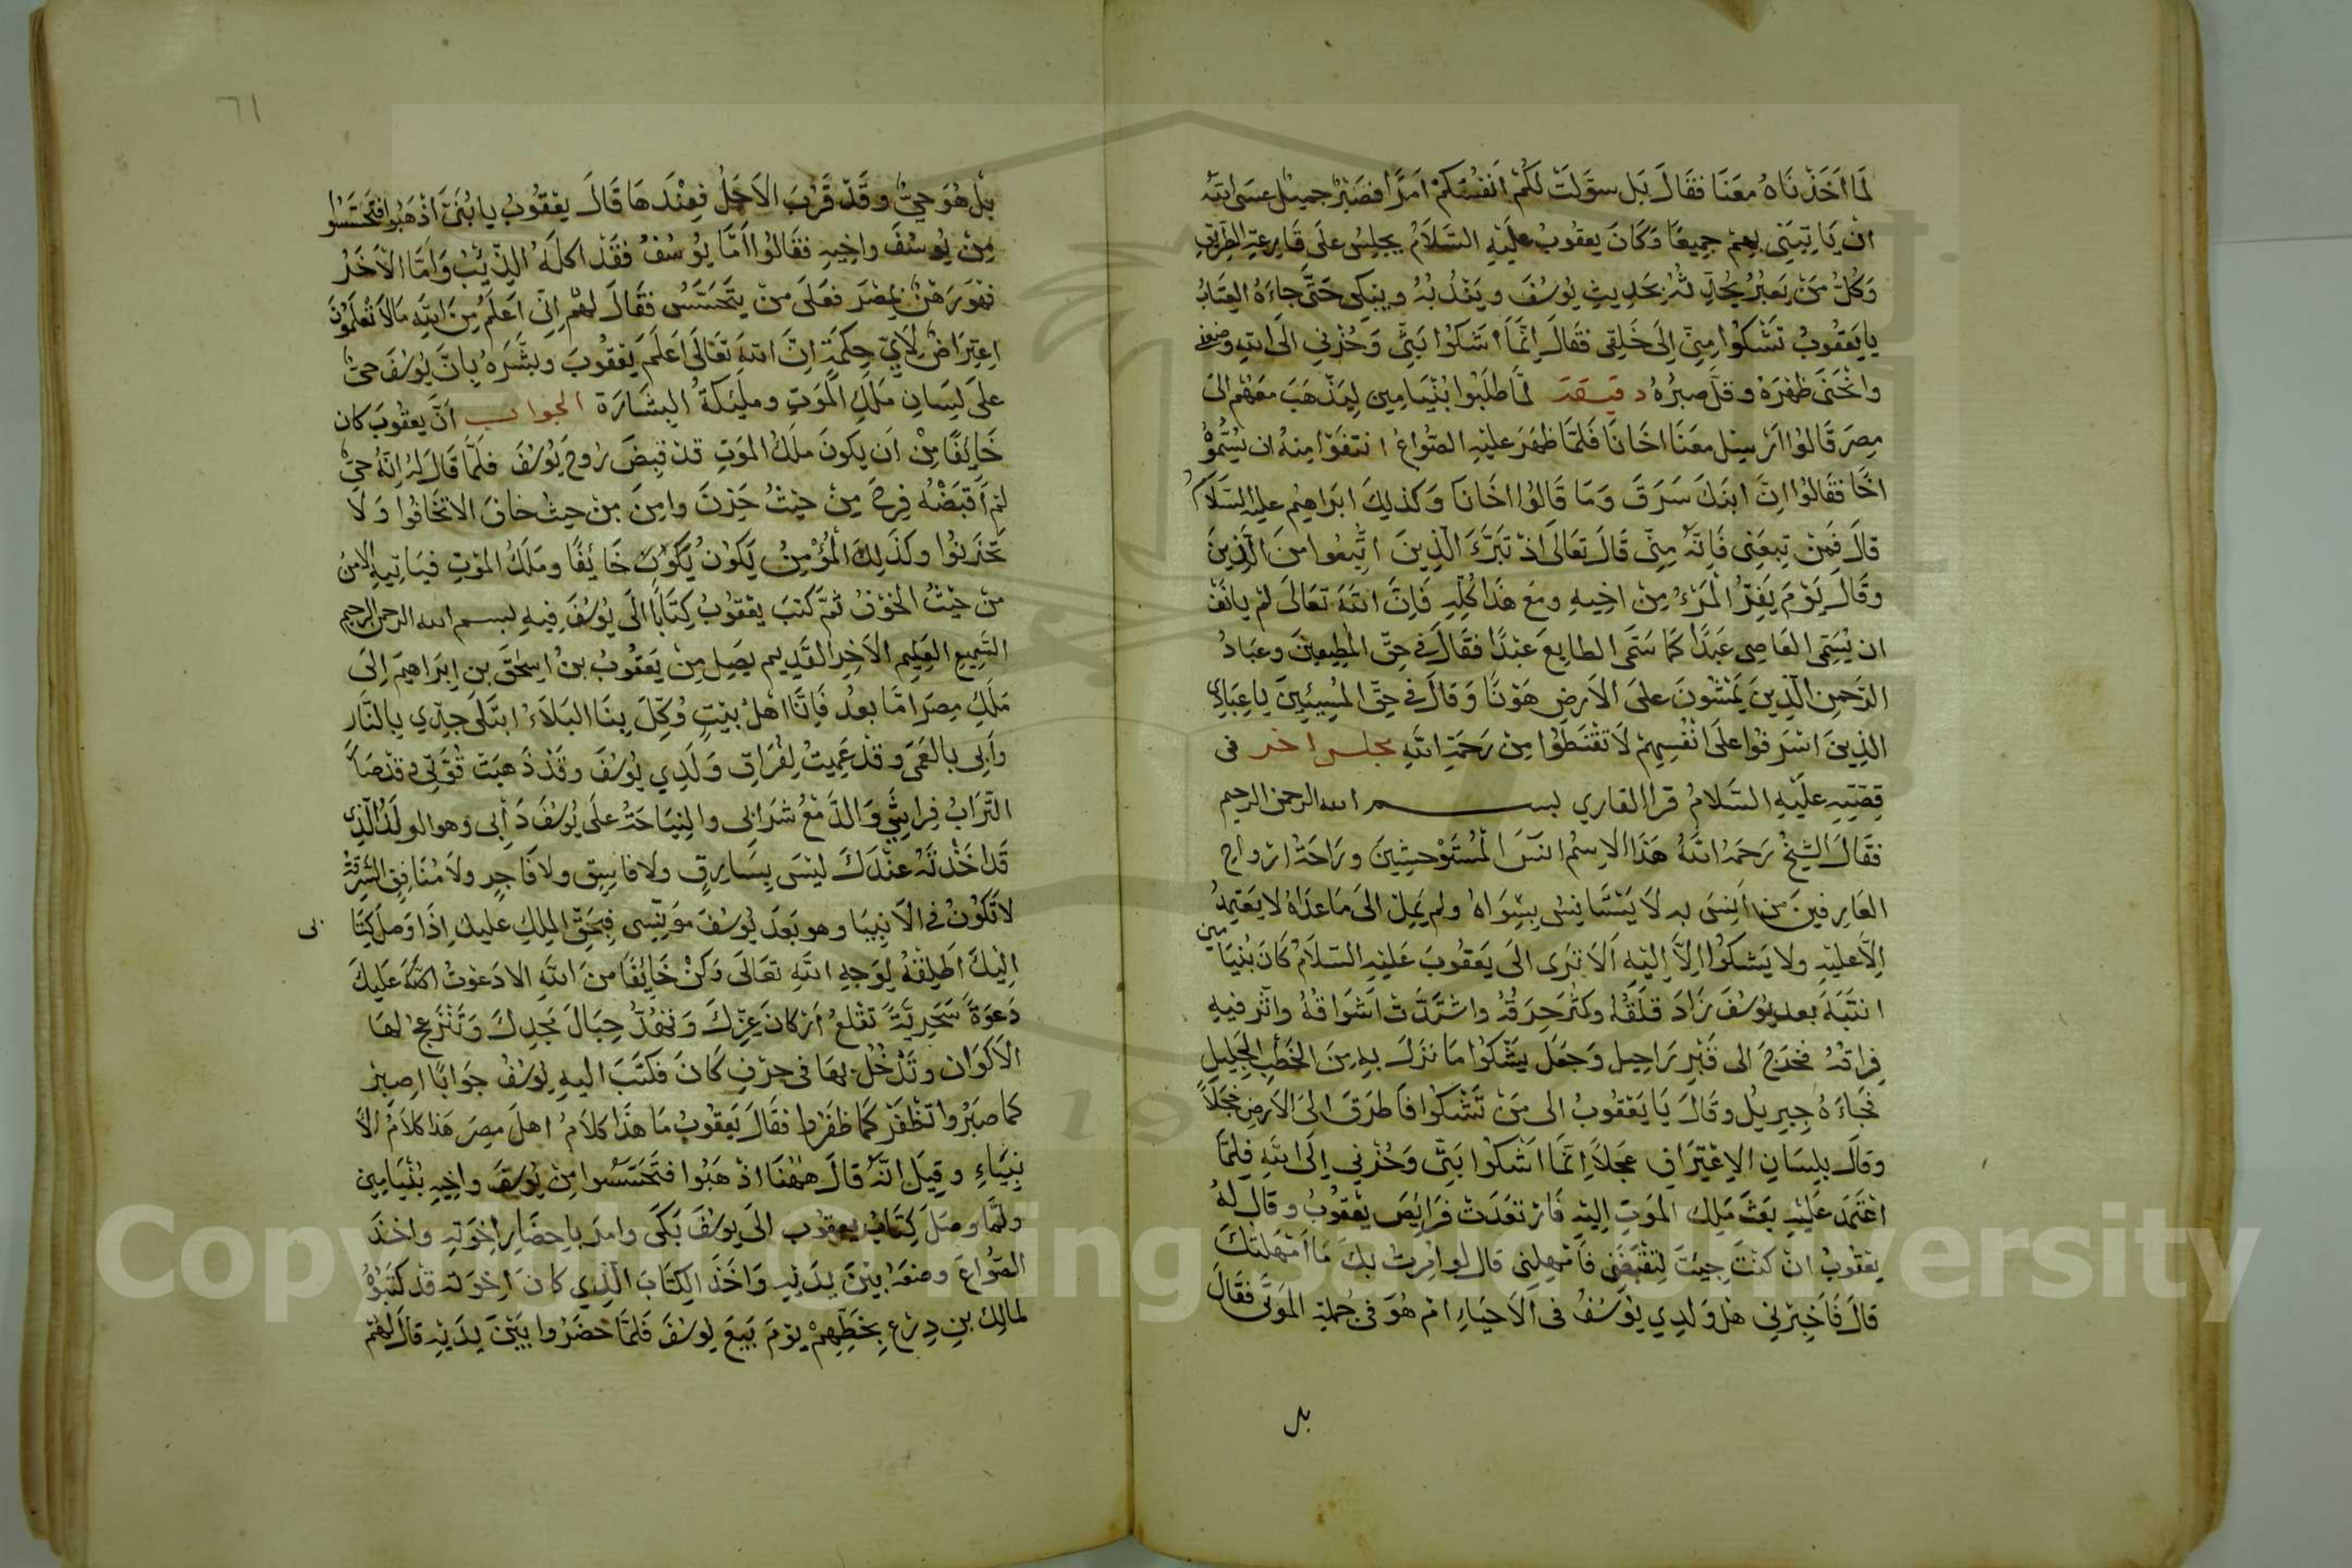 لما اخذناه معنا فقال بل سولت لكم انفسكم امرا فصبر جميل عسى الله
ان ياتيني بهم جميعا وكان يعقوب عليه السلام يجلس على قارعة الطريق
وكل من يعبر يحادثه بحديث يوسف ويندبه ويبكي حتى جاءه العتاب
يا يعقوب تشكوا مني الى خلقى فقال انما اشكوا بثي وحزني الى الله وضعف
وانحنى ظهره وقل صبره دقيقة لما طلبوا بنيامين ليذهب معهم الى
مصر قالوا ارسل معنا اخانا فلما ظهر عليه الصواع انتفوا منه ان يسموه
اخا فقالوا ان ابنك سرق وما قالوا اخانا وكذلك ابراهيم عليه السلام
قال فمن تبعني فانه مني قال تعالى اذ تبرا الذين اتبعوا من الذين
وقال يوم يفر المرء من اخيه ومع هذا كله فان الله تعالى لم يانف
ان يسمى العاصى عبدا كما سمى الطايع عبدا فقال في حق المطيعين وعباد
الرحمن الذين يمشون على الارض هونا وقال في حق المسيئين يا عبادي
الذين اسرفوا على انفسهم لا تقنطوا من رحمة الله مجلس اخر فى
قصته عليه السلام قرا القاري بسم الله الرحمن الرحيم
فقال الشيخ رحمه الله هذا الاسم انس المستوحشين وراحة ارواح
العارفين من انس به لا يستانس بسواه ولم يمل الى ما عداه لا يعتمد
الا عليه ولا يشكوا الا اليه الا ترى الى يعقوب عليه السلام كان بنيامين
انتبه بعد يوسف زاد قلقه وكثر حرقه واشتدت اشواقه واثر فيه
فراقه فخرج الى قبر راحيل وجعل يشكوا ما نزل به من الخطب الجليل
فجاءه جبريل وقال يا يعقوب الى من تشكوا فاطرق الى الارض خجلا
وقال بلسان الاعتراف عجلا انما اشكوا بثي وحزني الى الله فلما
اعتمد عليه بعث ملك الموت اليه فارتعدت فرايص يعقوب وقال له
يعقوب ان كنت جيت لتقبضني فامهلني قال لو امرت بك ما امهلتك
قال فاخبرني هل ولدي يوسف فى الاحياء ام هو فى جملة الموتى فقال
بل
٦١
بل هو حي وقد قرب الاجل فعندها قال يعقوب يا بني اذهبوا فتحسسوا
من يوسف واخيه فقالوا اما يوسف فقد اكله الذيب واما الاخر
فهو رهن بمصر فعلى من يتحسس فقال لهم اني اعلم من الله ما لا تعلمون
اعتراض لاي حكمة ان الله تعالى اعلم يعقوب وبشره بان يوسف حي
على لسان ملك الموت ومليكة البشارة الجواب ان يعقوب كان
خايفا من ان يكون ملك الموت قد قبض روح يوسف فلما قال له انه حي
لم اقبضه فرح من حيث حزن وامن من حيث خاف الا تخافوا ولا
تحزنوا وكذلك المؤمن يكون يكون خايفا وملك الموت فياتيه الامن
من حيث الخوف ثم كتب يعقوب كتابا الى يوسف فيه بسم الله الرحمن الرحيم
السميع العليم الاخر القديم يصل من يعقوب بن اسحق بن ابراهيم الى
ملك مصر اما بعد فانا اهل بيت وكل بنا البلاء ابتلى جدي بالنار
وابي بالعمى وقد عميت لفراق ولدي يوسف وقد ذهبت قوتي وقد صار
التراب فراشي والدمع شرابى والنياحة على يوسف دابى وهو الولد الذي
قد اخذته عندك ليس بسارق ولا فاسق ولا فاجر ولا منافق السرقة
لا تكون في الانبيا وهو بعد يوسف مونسي فبحق الملك عليك اذا وصل كتابي
اليك اطلقه لوجه الله تعالى وكن خايفا من الله الا دعوت الله عليك
دعوة سحرية تقلع اركان عزك وتهد جبال مجدك وتنزعج لها
الاكوان وتدخل بها في حزن كان فكتب اليه يوسف جوابا اصبر
كما صبروا تظفر كما ظفروا فقال يعقوب ما هذا كلام اهل مصر هذا كلام الا
نبياء وقيل انه قال ههنا اذهبوا فتحسسوا من يوسف واخيه بنيامين
ولما وصل كتاب يعقوب الى يوسف بكى وامر باحضار اخوته واخذ
الصواع وضعه بين يديه واخذ الكتاب الذي كان اخوته قد كتبوه
لمالك بن دعر بخطهم يوم بيع يوسف فلما حضروا بين يديه قال لهم
Copyright © King Saud University